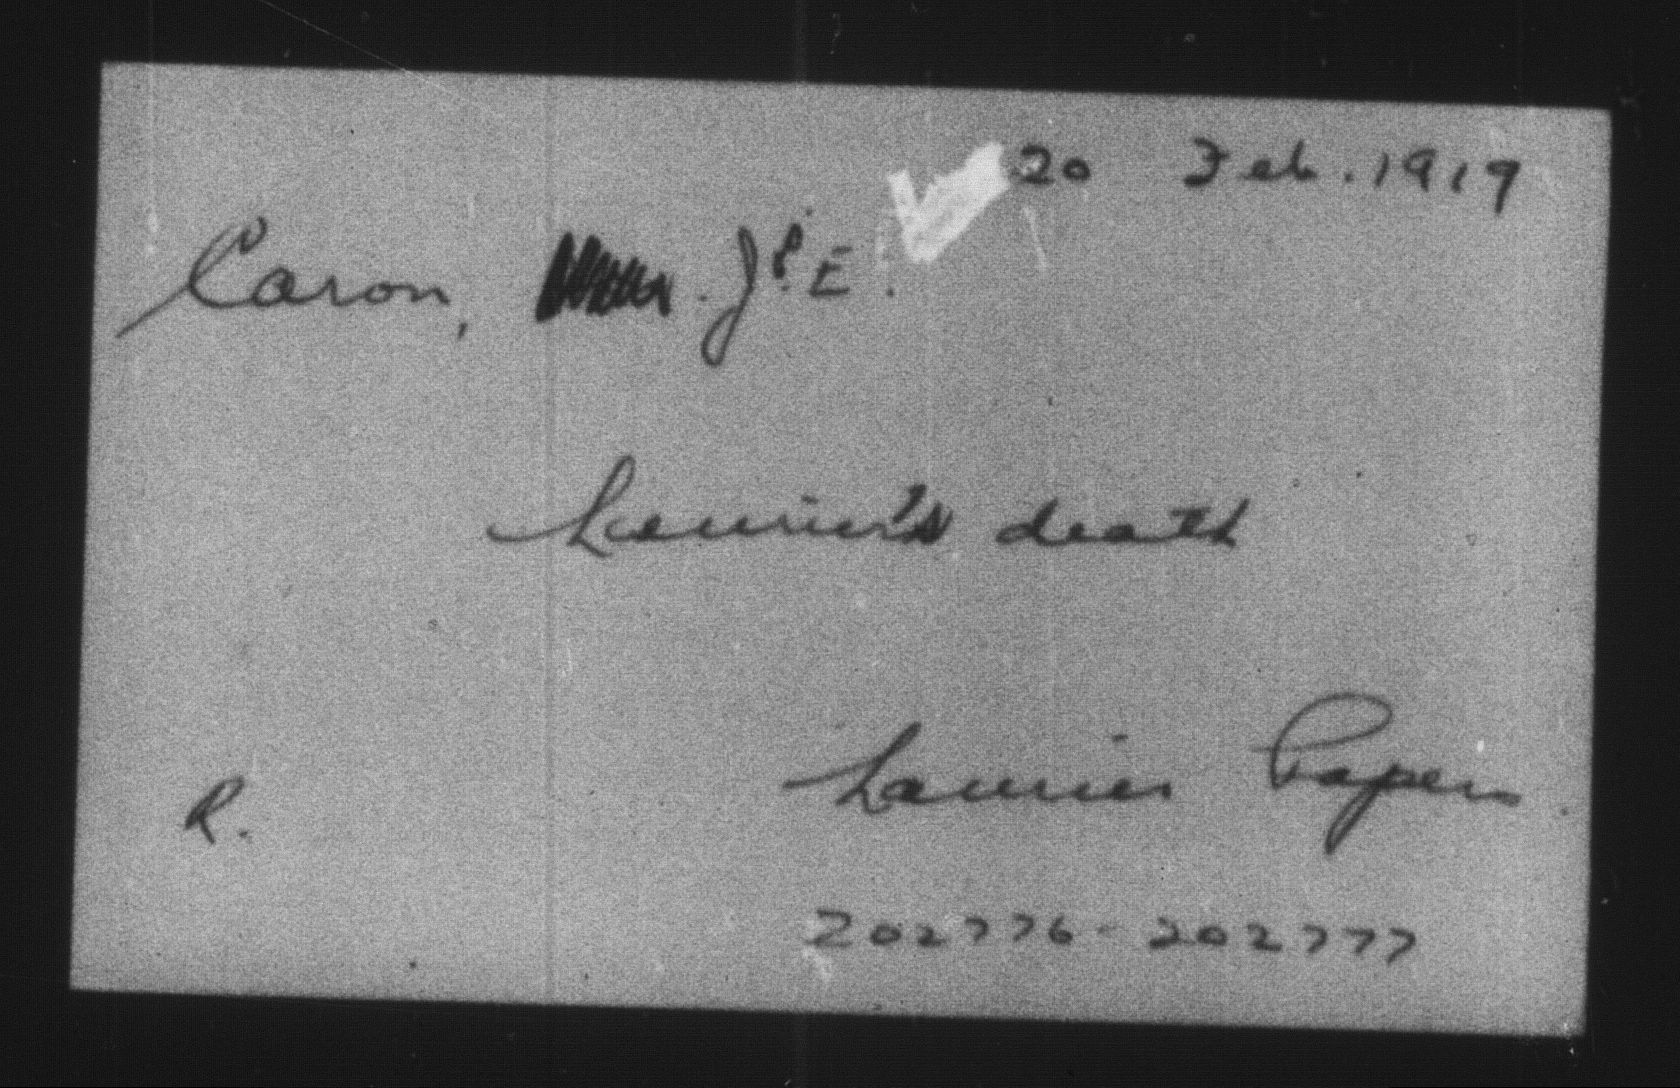 20 Feb. 1919
Caron, . Jp. E.
Laurier's death
Laurier Papers.
R.
202776-202777